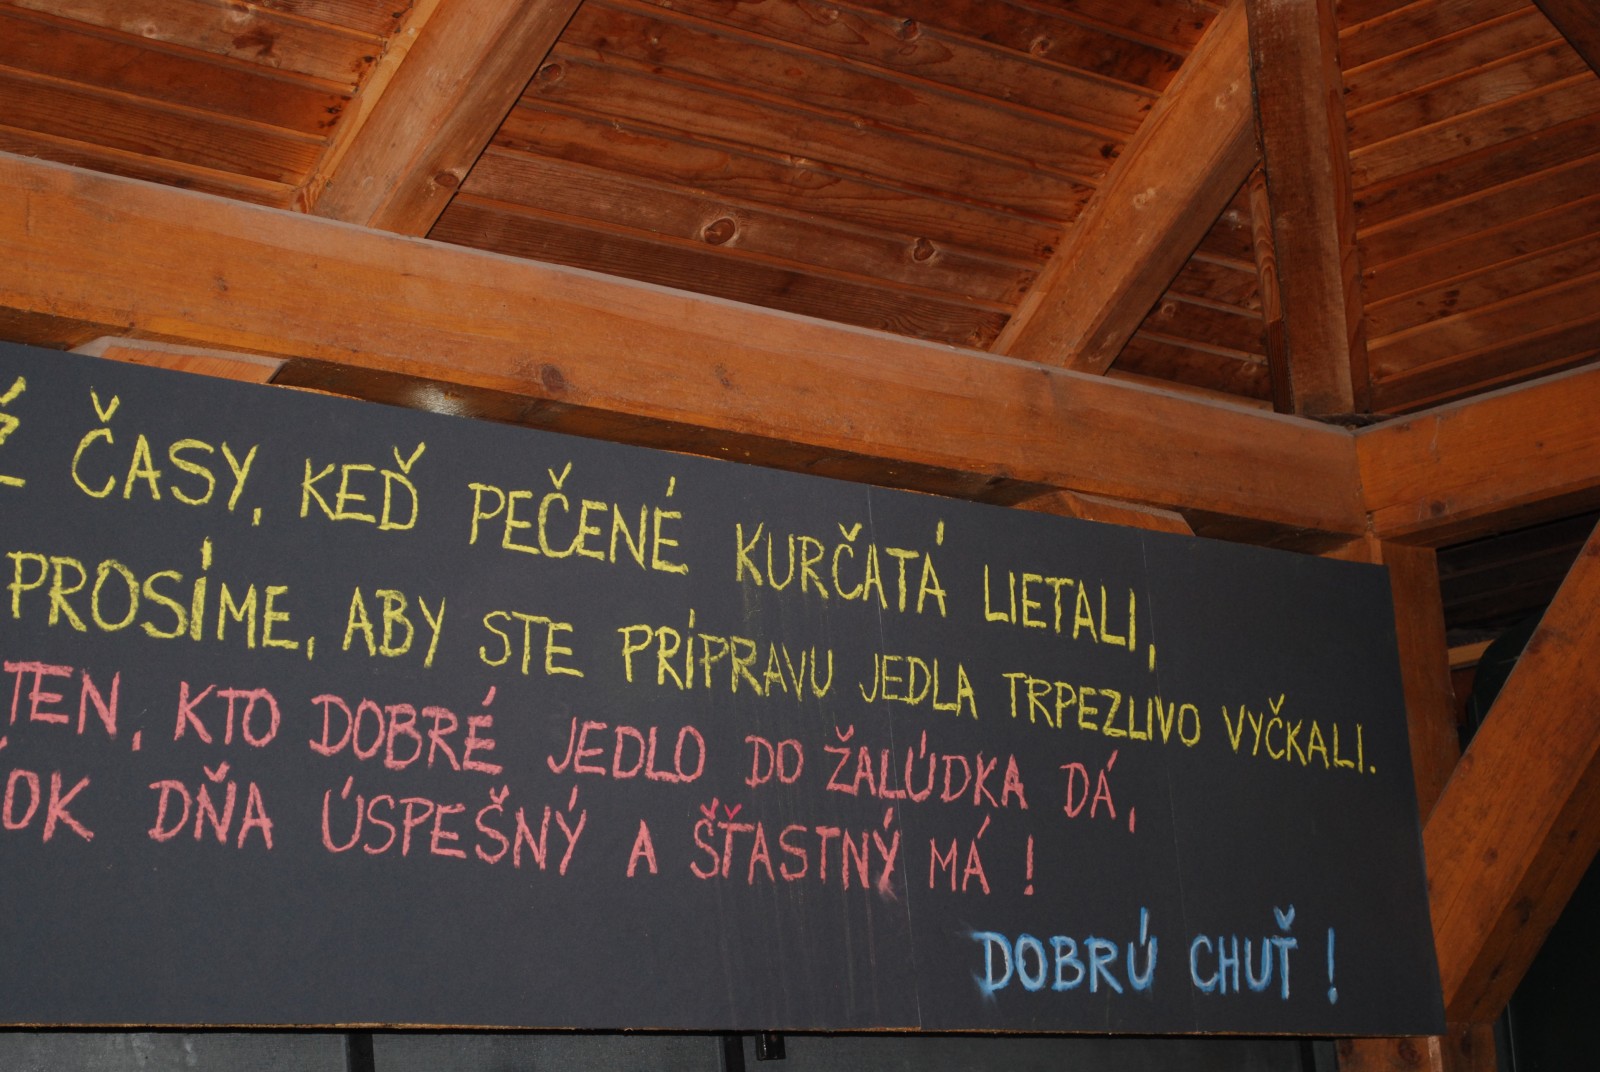 ČASY, KEĎ PEČENÉ KURČATÁ LIETALI,
PROSÍME, ABY STE PRÍPRAVU JEDLA TRPEZLIVO VYČKALI.
TEN, KTO DOBRÉ JEDLO DO ŽALÚDKA DÁ,
OK DŇA ÚSPEŠNÝ A ŠŤASTNÝ MÁ!
DOBRÚ CHUŤ!